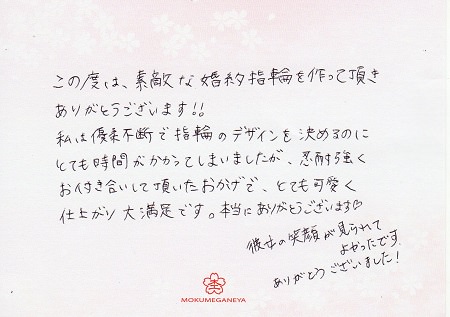 この度は、素敵な婚約指輪を作って頂き
ありがとうございます!!
私は優柔不断で指輪のデザインを決めるのに
とても時間がかかってしまいましたが、忍耐強く
お付き合いして頂いたおかげで、とても可愛く
仕上がり大満足です。本当にありがとうございます♡
彼女の笑顔が見られて
よかったです。
ありがとうございました!
MOKUMEGANEYA